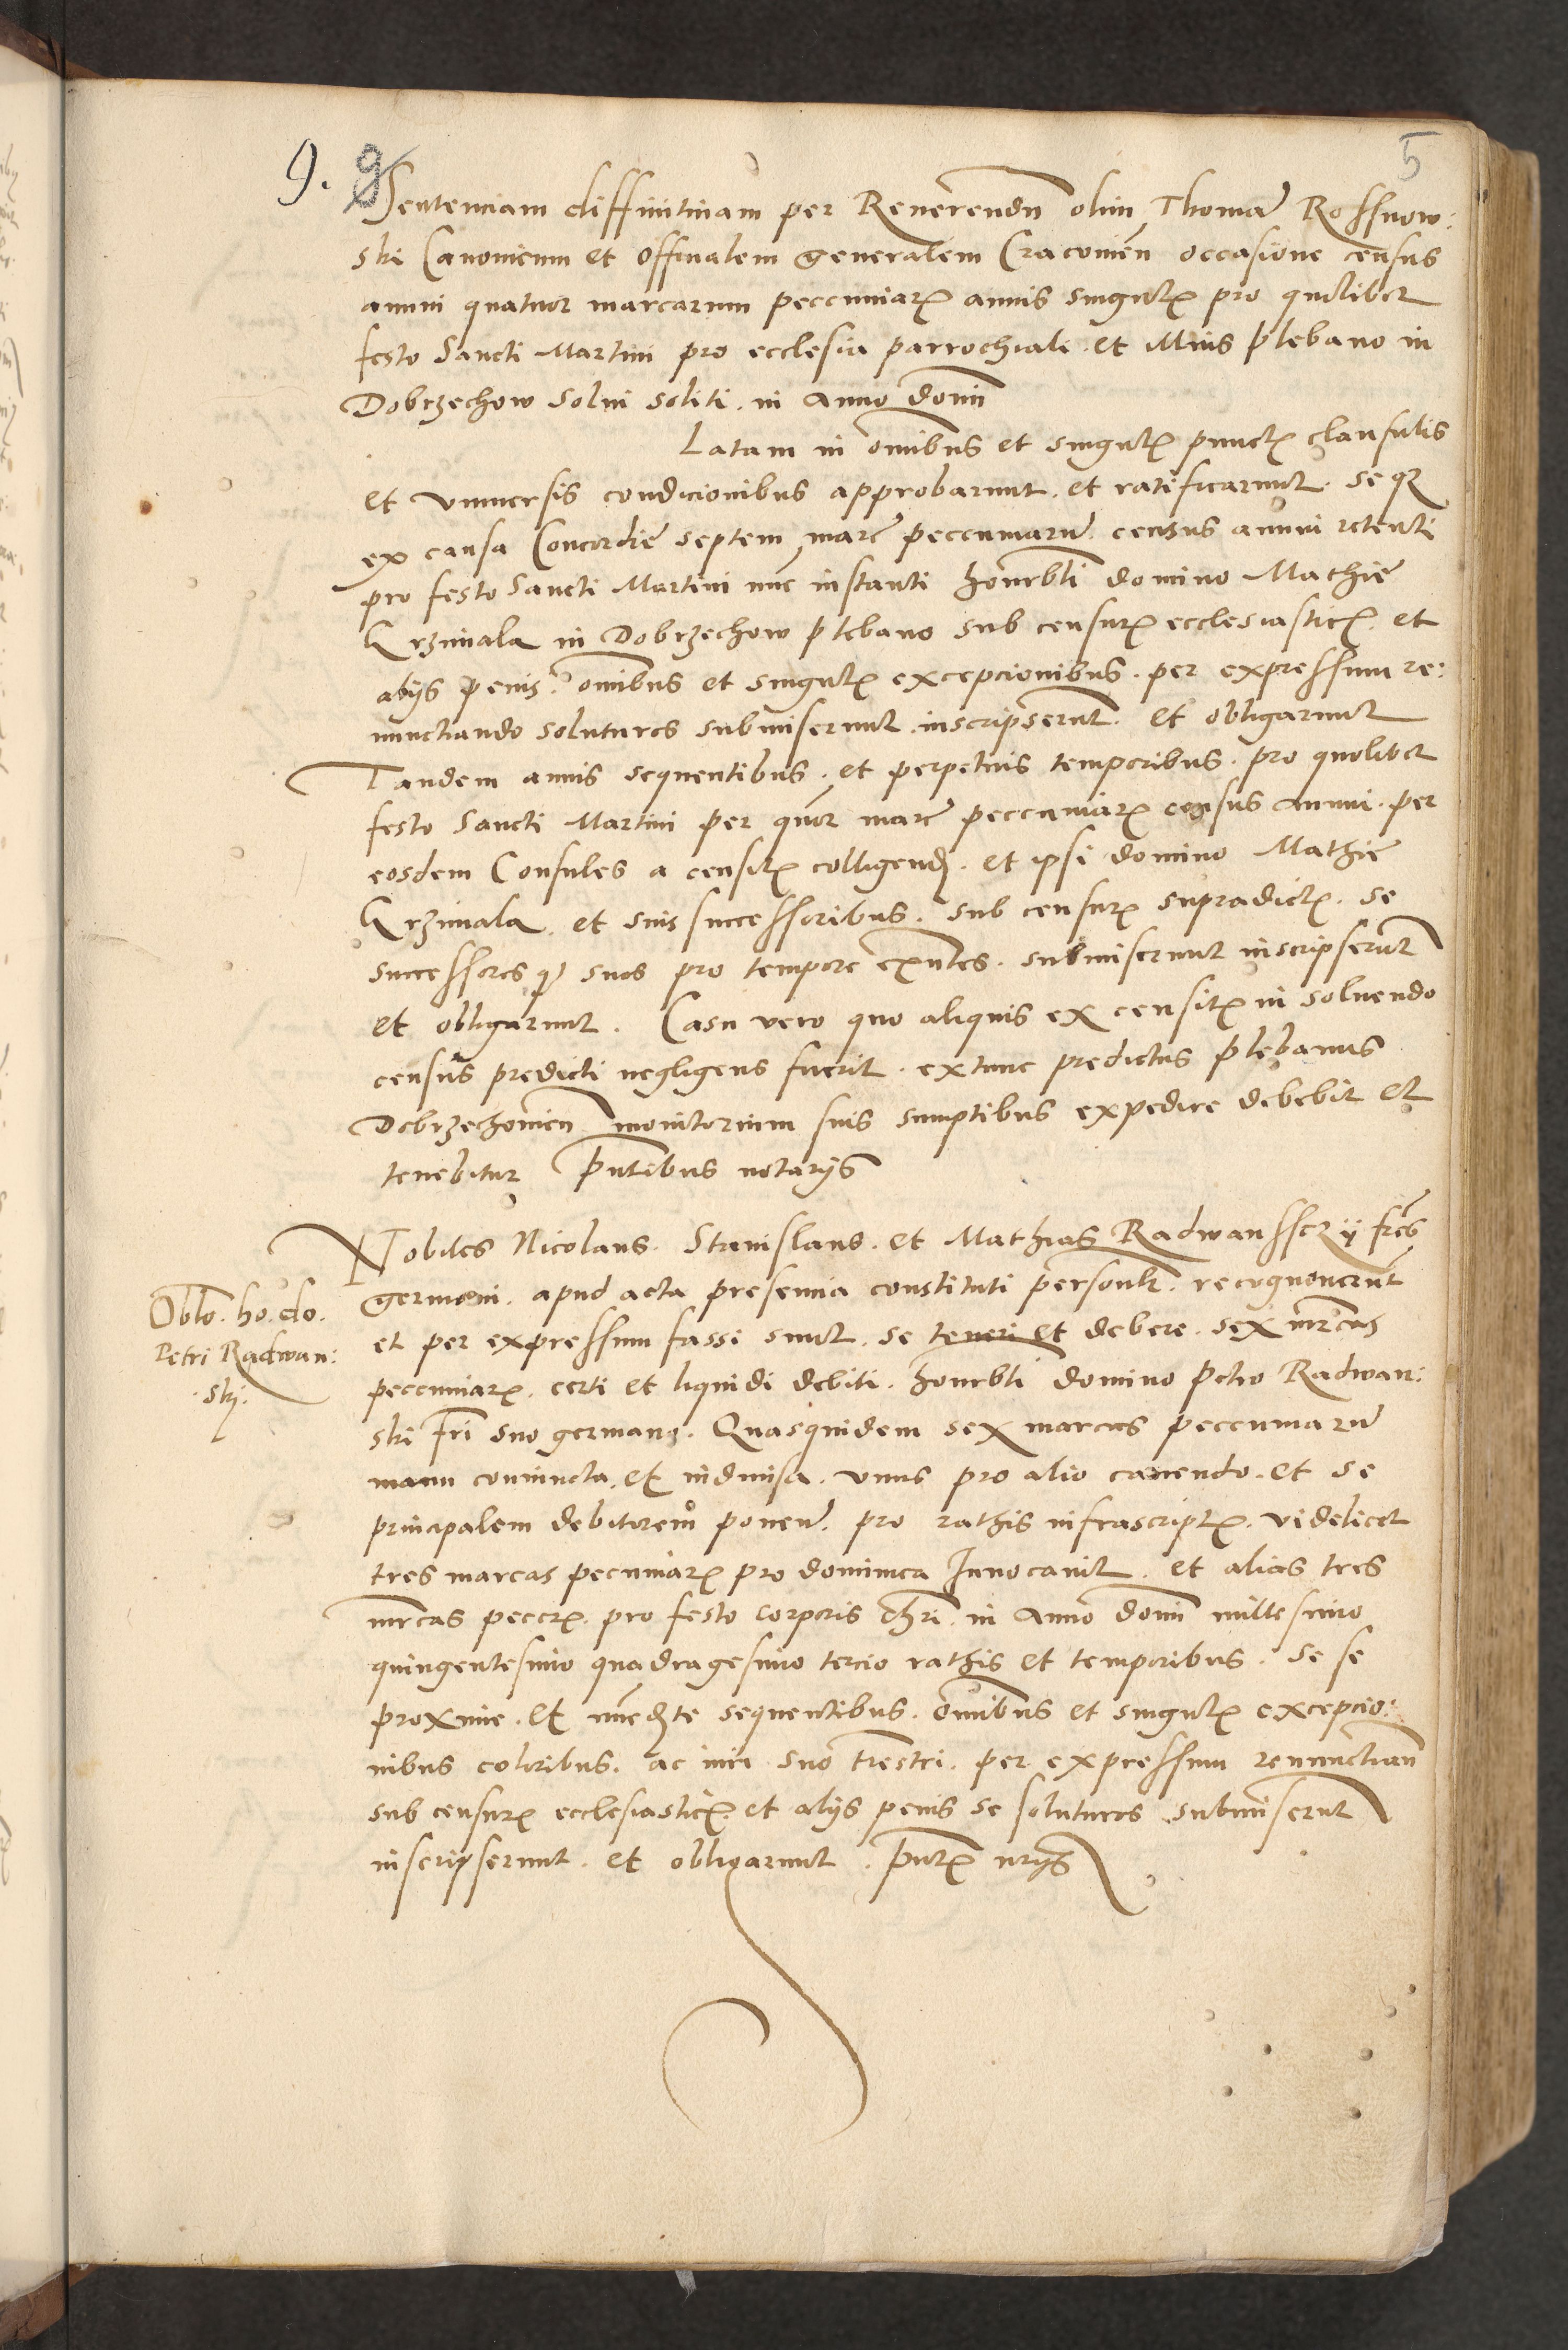 9. 9 5
Sentenciam diffinitiuam per Reuerendu olim Thomā Rossnow:
ski Canonicum et Officialem generalem Cracouień occasione census
annui quatuor marcarum peccuniarꝝ annis singulꝝ pro quolibet
festo Sancti Martini pro ecclesia parrochiali et illius plebano in
Dobrzechow solui soliti. in Anno Domī
Latam in omibus et singulꝝ punctꝝ clausulis
et vniuersis condicionibus approbarunt. et ratificarunt. Se qꝫ
ex causa Concordiē septem marc̄ peccuniarū census annui retenti
pro festo Sancti Martini nūc instanti honorbli domino Mathiē
Krzimala in Dobrzechow plebano sub censurꝝ ecclesiasticꝝ. et
alijs penis. omibus et singulꝝ excepcionibus. per expressum re:
nunctiando soluturos submiserunt. inscripserut. et obligarunt
Tandem annis sequentibus. et perpetuis temporibus. pro quolibet
festo Sancti Martini per quor marc̄ peccuniarꝝ census annui. per
eosdem Consules a censitꝝ colligendꝫ. et ipsi domino Mathiē
Krzimala. et suis successoribus. sub censurꝝ supradictꝝ. se
successores qꝫ suos pro tempore exntes. submiserunt inscripserut
et obligarunt. Casu vero quo aliquis ex censitꝝ in soluendo
census predicti negligens fuerit. extunc predictus plebanus
Dobrzechouień monitorium suis sumptibus expedire debebit et
tenebitur Pntibus notarijs
Nobiles Nicolaus. Stanislaus. et Mathias Radwansscz ij frēs
germani. apud acta presencia constituti personlr. recognouerūt
Oblo. ho. do.
Petri Radwan:
skj.
et per expressum fassi sunt. se teneri et debere. sex mrcas
peccuniarꝝ. certi et liquidi debiti. honorbli domino Petro Radwan:
ski fri suo germano. Quasquidem sex marcas peccuniarū
manu coniuncta. et indiuisa. vnus pro alio cauendo. et se
principalem debitorem ponen. pro rathis infrascriptꝝ. videlicet
tres marcas pecuniarꝝ pro dominica Inuocauit. et alias tres
mrcas peccrꝝ. pro festo Corporis Chri. in Anno Domi millesimo
quingentesimo quadragesimo tercio rathis et temporibus. se se
proxime. et immedte sequentibus. omibus et singulꝝ excepcio:
nibus coloribus. ac iuri suo trestri. per expressum renunctian
sub censurꝝ ecclesiasticꝝ. et alijs penis se soluturos submiserut
inscripserunt. et obligarunt. Pntꝝ nrijs